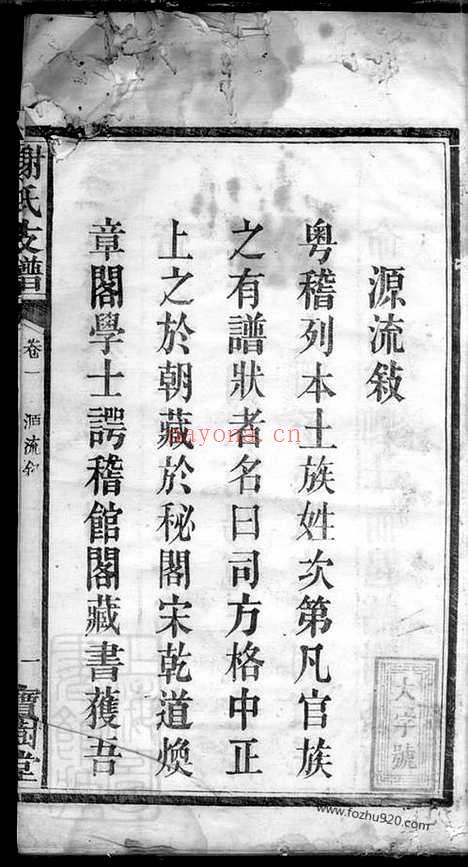 源流敍
粤稽列本土族姓次第凡官族
之有譜狀者名曰司方格中正
上之於朝藏於秘閣宋乾道煥
章閣學士諤稽館閣藏書獲吾
謝氏支譜
卷一
源流敍
一
寶樹堂
大字號
nayona.cn
www.fozhu920.com